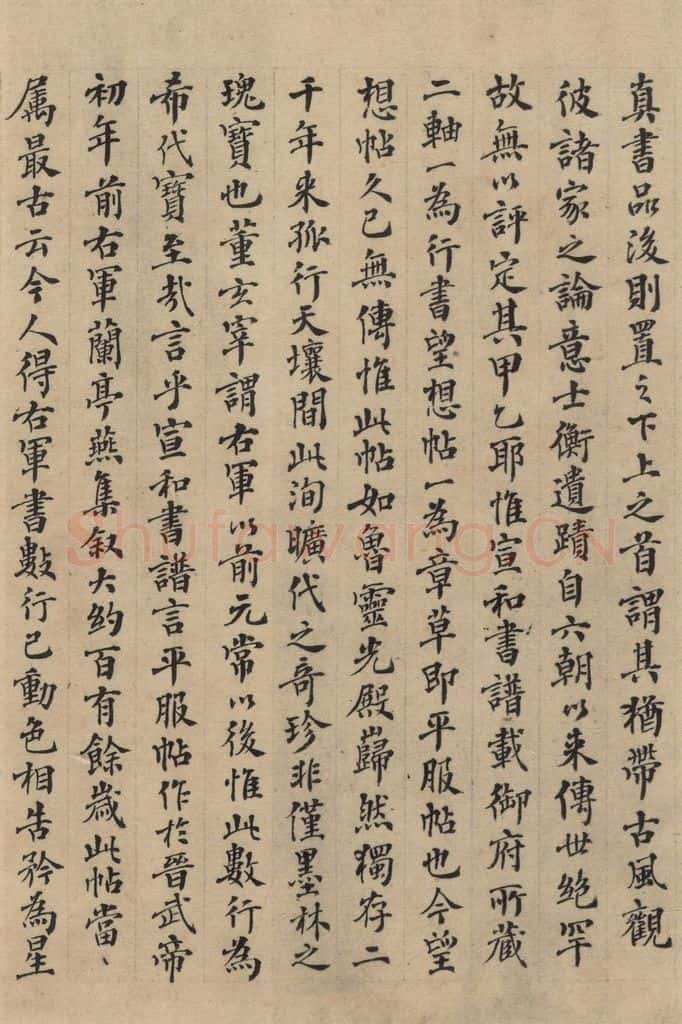 真書品後則置之下上之首謂其猶帶古風觀
彼諸家之論意士衡遺蹟自六朝以来傳世絶罕
故無以評定其甲乙耶惟宣和書譜載御府所藏
二軸一為行書望想帖一為章草即平服帖也今望
想帖久已無傳惟此帖如魯靈光殿巋然獨存二
千年来孤行天壤間此洵曠代之奇珍非僅墨林之
瑰寶也董玄宰謂右軍以前元常以後惟此數行為
希代寶至哉言乎宣和書譜言平服帖作於晉武帝
初年前右軍蘭亭燕集叙大約百有餘歲此帖當、
属最古云今人得右軍書數行已動色相告矜為星
Shufawang.CN